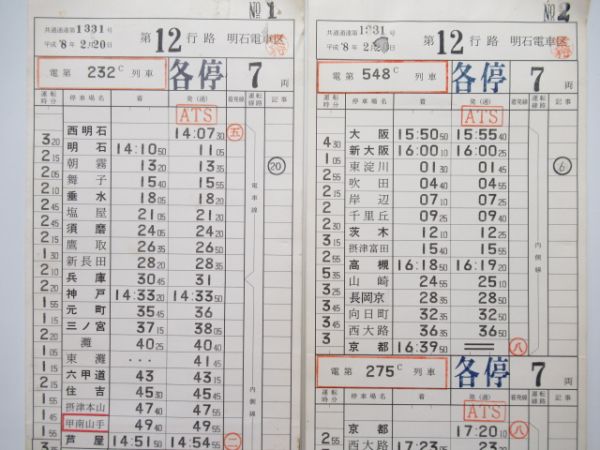 NO 1
共通運達第1331号
平成'8年2月20日
第12行路 明石電車区
電第232C列車 各停 7両
運転時分 停車場名 着 発(通) 着発線 運転線路 記事
ATS
西明石 14:07 30 五
3 20 明石 14:10 50 11 05
2 15 朝霧 13 20 13 35 20
2 05 舞子 15 40 15 55
2 10 垂水 18 05 18 20 電車線
2 45 塩屋 21 05 21 20
2 45 須磨 24 05 24 20
2 15 鷹取 26 35 26 50
1 30 新長田 28 20 28 35
2 10 兵庫 30 45 31
2 20 神戸 14:33 20 14:33 50
1 45 元町 35 35 36
1 15 三ノ宮 37 15 38 05
2 20 灘 40 25 40 40
東灘 ・・・ 41 45
六甲道 43 43 15
住吉 45 30 45 55 内側線
摂津本山 47 40 47 55
1 45 甲南山手 49 40 49 55
芦屋 14:51 50 14:54 55 二
NO 2
共通運達第1331号
平成'8年2月20日
第12行路 明石電車区
電第548C列車 各停 7両
運転時分 停車場名 着 発(通) 着発線 運転線路 記事
ATS
大阪 15:50 50 15:55 40
4 30 新大阪 16:00 10 16:00 25
1 05 東淀川 01 30 01 45 6
2 15 吹田 04 40 04 55
2 15 岸辺 07 10 07 25
2 千里丘 09 25 09 40
2 30 茨木 12 10 12 25
3 15 摂津富田 15 40 15 55
2 55 高槻 16:18 50 16:19 20 内側線
山崎 24 55 25 10
長岡京 28 35 28 50
向日町 32 35 32 50
西大路 36 35 36 50
3 京都 16:39 50 八
電第275C列車 各停 7両
運転時分 停車場名 着 発(通) 着発線 運転線路 記事
ATS
京都 17:20 10 八
2 55 西大路 17:23 05